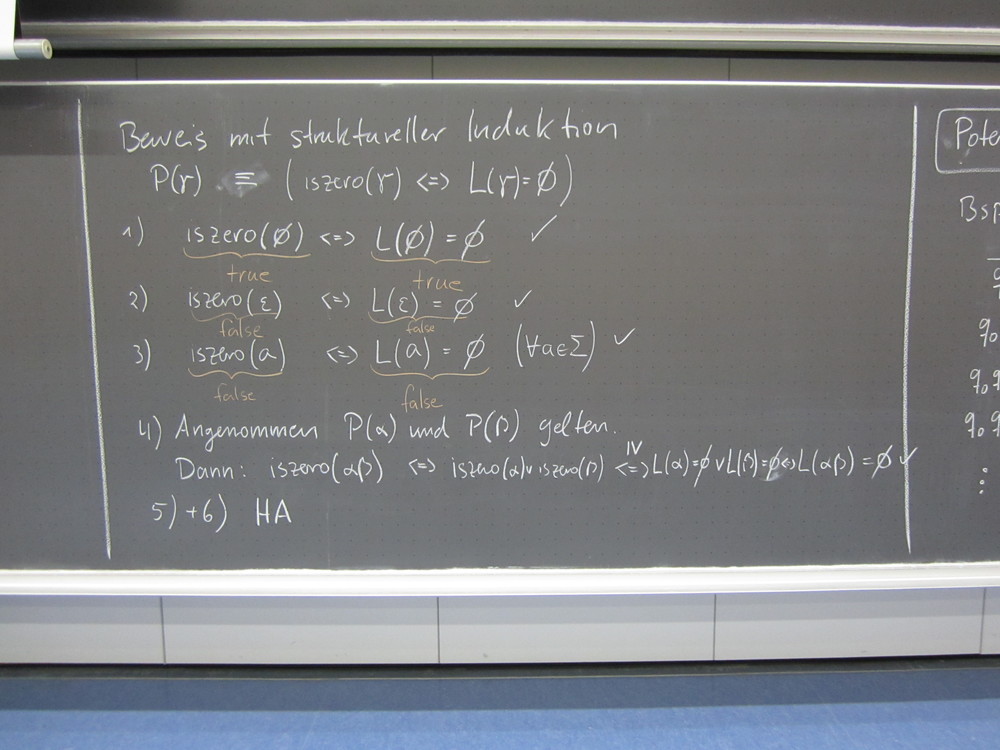 Beweis mit struktureller Induktion
P(γ) ≡ (iszero(γ) <=> L(γ)=∅)
1) iszero(∅) <=> L(∅) = ∅ ✓
true true
2) iszero(ε) <=> L(ε) = ∅ ✓
false false
3) iszero(a) <=> L(a) = ∅ (∀a∈Σ) ✓
false false
4) Angenommen P(α) und P(β) gelten.
IV
Dann: iszero(αβ) <=> iszero(α)∨iszero(β) <=> L(α)=∅∨L(β)=∅<=>L(αβ)=∅ ✓
5)+6) HA
Pote
Bsp
q₀
q₀q
q₀q
⋮